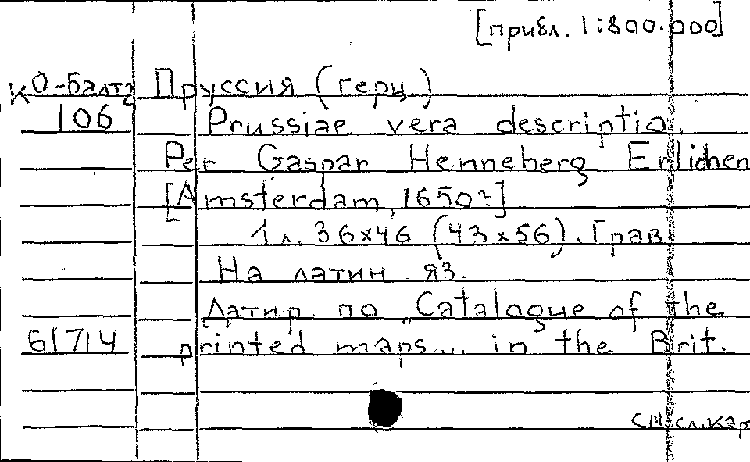 [прибл. 1:800.000]
КО-Балт Пруссия (герц.)
106 Prussiae vera descriptio.
Per Gaspar Henneberg Erlichen
[Amsterdam, 1650?]
1л. 36х46 (43х56). Грав.
На латин. яз.
Датир. по „Catalogue of the
61714 printed maps... in the Brit.
см. сл. кар